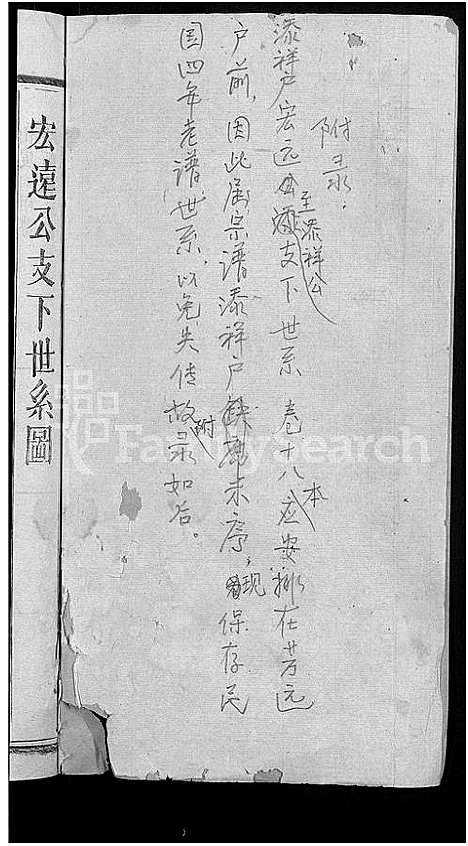 附录.
添祥户宏远公至添祥公支下世系 卷十八本应安排在芳远
户前，因此届宗谱添祥户未序，现保存民
国四年老谱世系，以免失传故附录如后。
宏遠公支下世系圖
FamilySearch